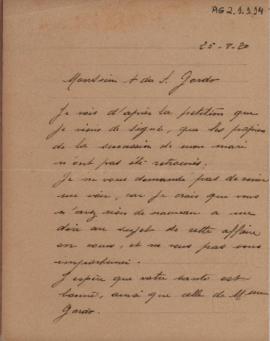 AG2.1.1.94
25-8-20
Monsieur A. dos S. Jardo
Je vois d'après la petition que
je viens de signé, que les papiers
de la succession de mon mari
n'ont pas été retrouvés.
Je ne vous demande pas de venir
me voir, car je crois que vous
n'avez rien de nouveau a me
dire au sujet de cette affaire
en cours, et ne veux pas vous
importuner.
J'espère que votre santé est
bonne, ainsi que celle de Mme
Jardo.